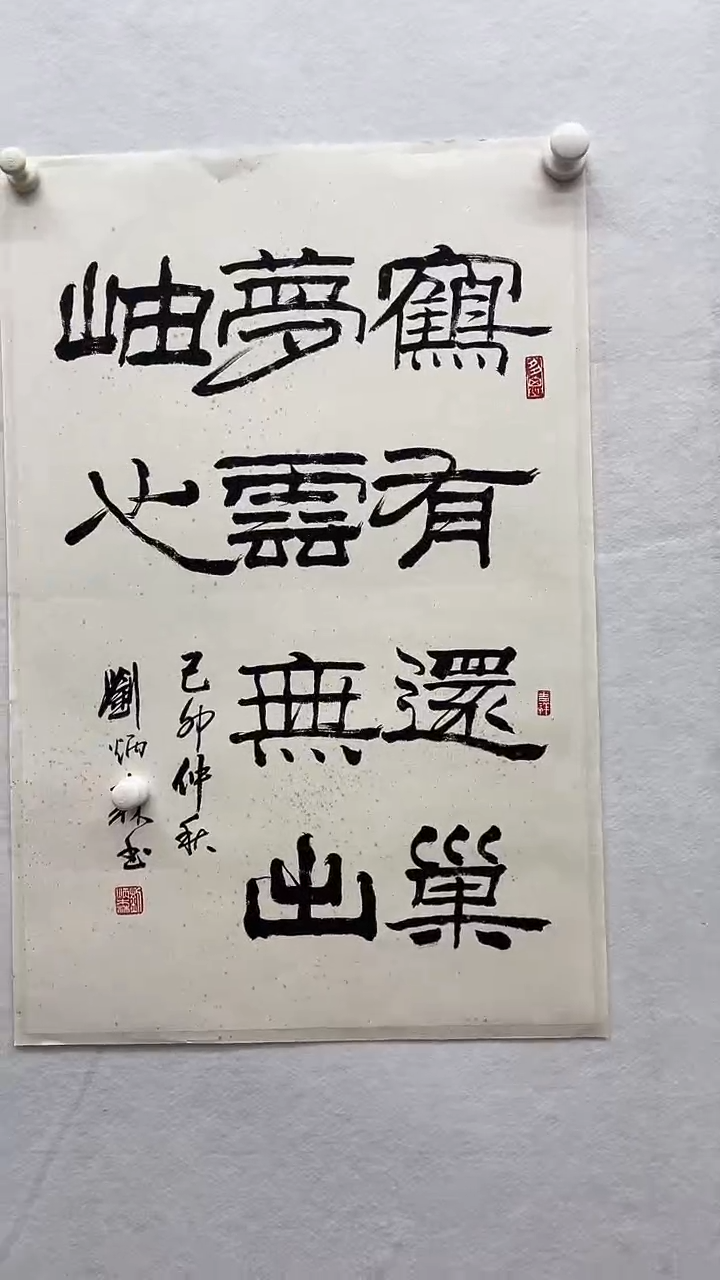 鶴有還巢
夢雲無出
岫心
己卯仲秋
劉炳森書
吉祥